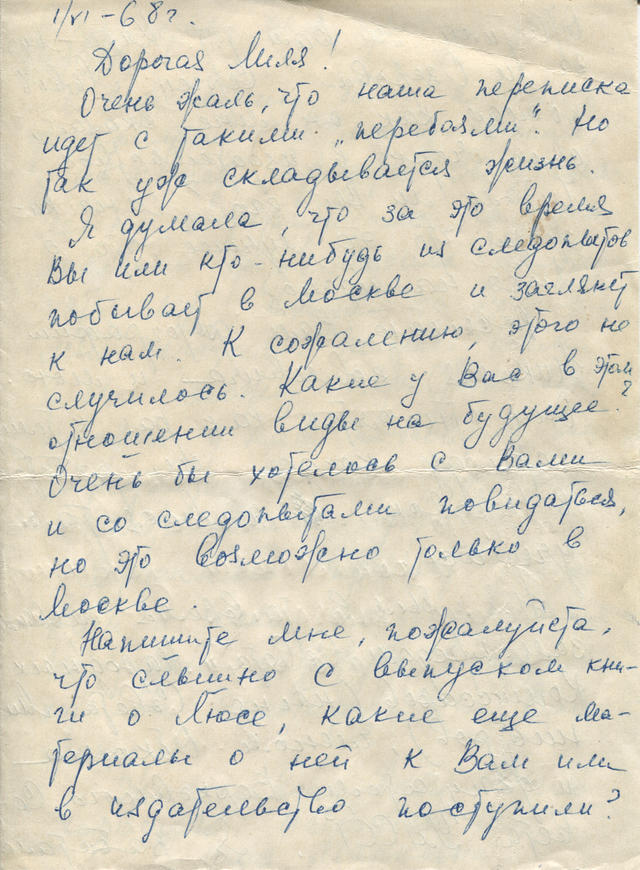 1/VI – 68 г.
Дорогая Миля!
Очень жаль, что наша переписка
идет с такими „перебоями". Но
так уж складывается жизнь.
Я думала, что за это время
Вы или кто-нибудь из следопытов
побывает в Москве и заглянет
к нам. К сожалению, этого не
случилось. Какие у Вас в этом
отношении виды на будущее?
Очень бы хотелось с Вами
и со следопытами повидаться,
но это возможно только в
Москве.
Напишите мне, пожалуйста,
что слышно с выпуском кни-
ги о Люсе, какие еще ма-
териалы о ней к Вам или
в издательство поступили?